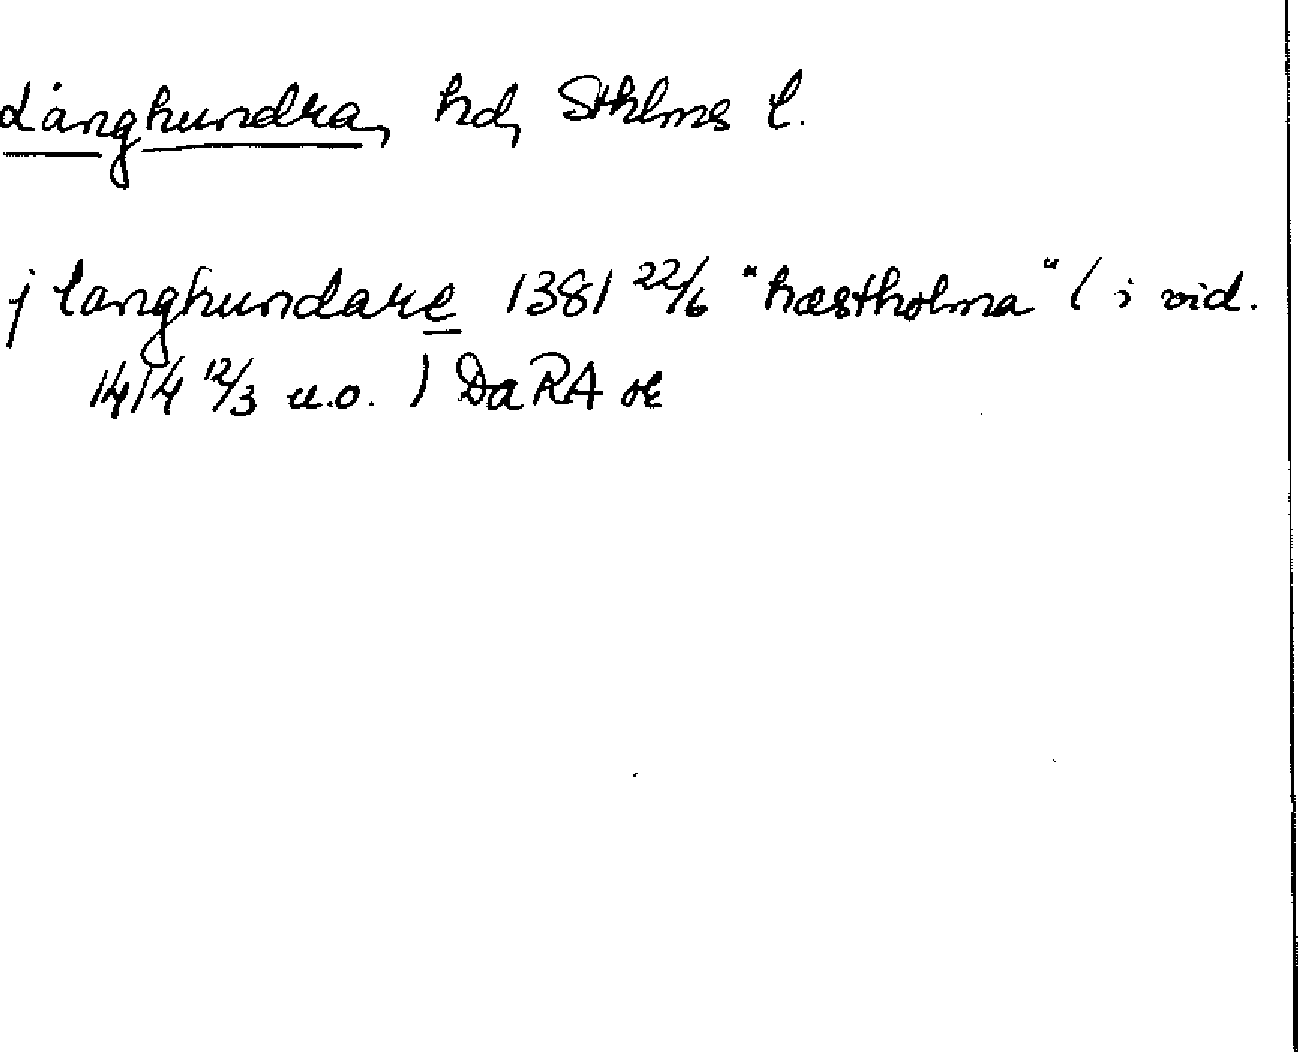 Långhundra, hd, Sthlms l.
j langhundare 1381 22/6 "hæstholma" (i vid.
1414 12/3 u.o.) DaRA or